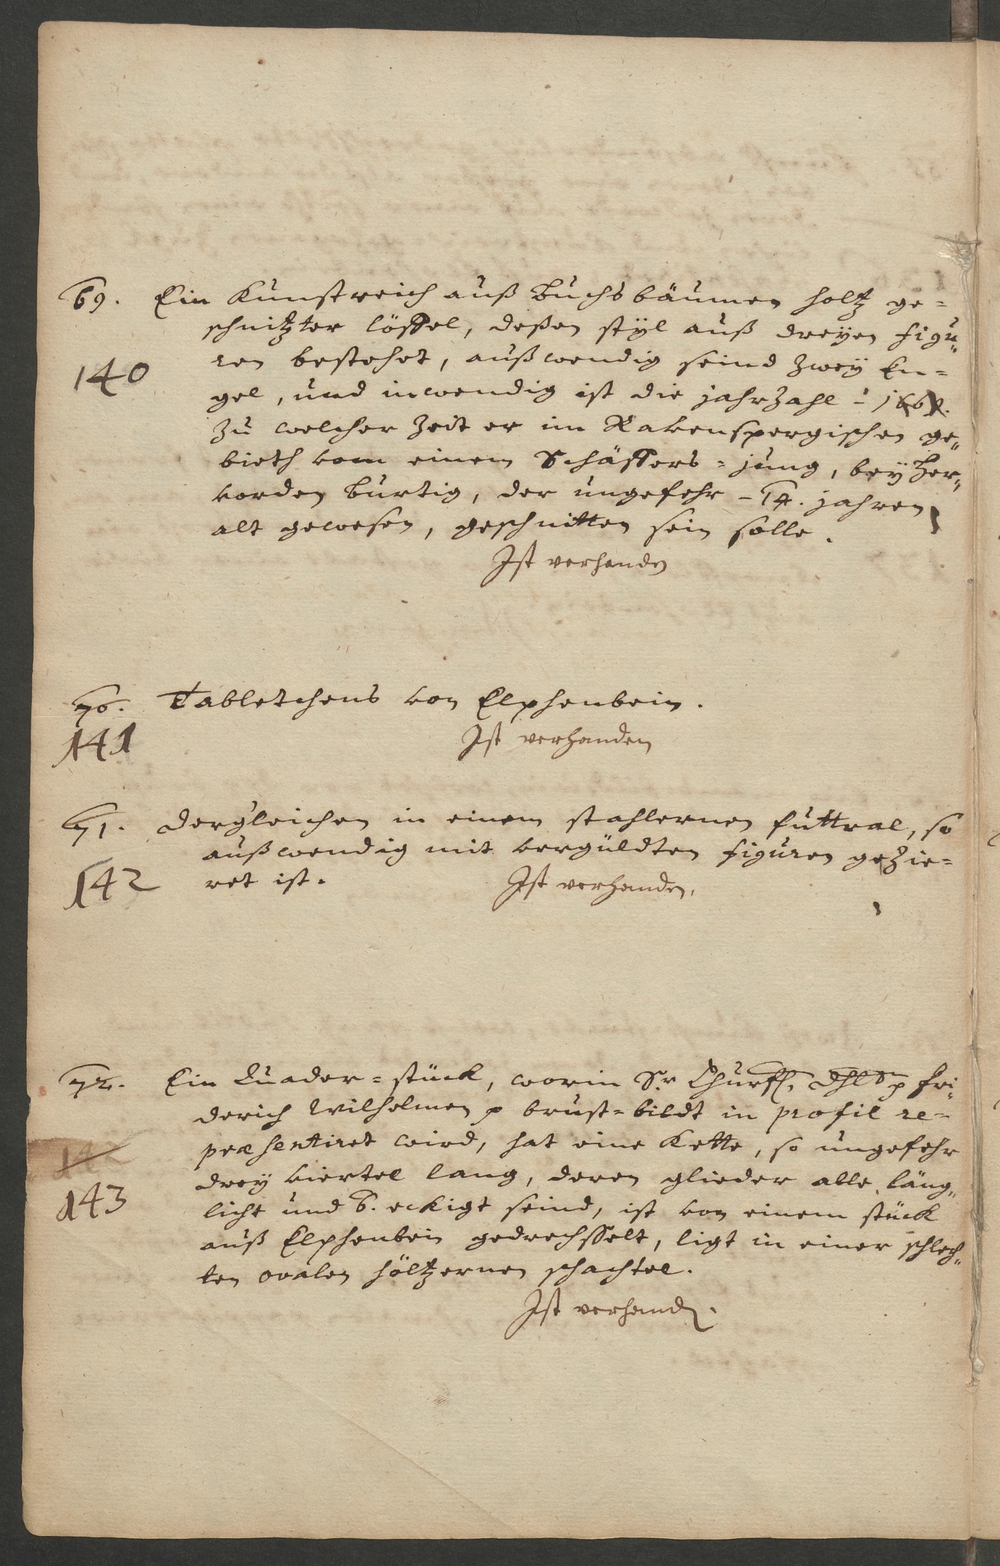 69. Ein Kunstreich auß Buchsbäumen holtz ge=
schnitzter löffel, deßen styl auß dreyen figu=
140
ren bestehet, außwendig seind zwey En=
gel, und inwendig ist die jahrzahl -
zu welcher Zeit er im Ravenspergischen ge=
bieth vom einem Schäffers=jung, bey Her=
vorden burtig, der ungefehr - 14. jahren
alt gewesen, geschnitten sein solle.
Ist verhanden
70. Tabletchens von Elphenbein.
141
Ist verhanden
71. dergleichen in einem stahlernen futtral, so
außwendig mit vergüldten figuren gezie=
142
ret ist. Ist verhanden.
72. Ein Quader=stück, worin Sr Churfl. dhl Fri=
derich Wilhelmen brust=bildt in profil re=
præsentiret wird, hat eine Kette, so ungefehr
142
drey viertel lang, deren glieder alle läng=
143
licht und 6. eckigt seind, ist von einem stück
auß Elphenbein gedrechsselt, ligt in einer schlech=
ten ovalen höltzernen schachtel.
Ist verhand.